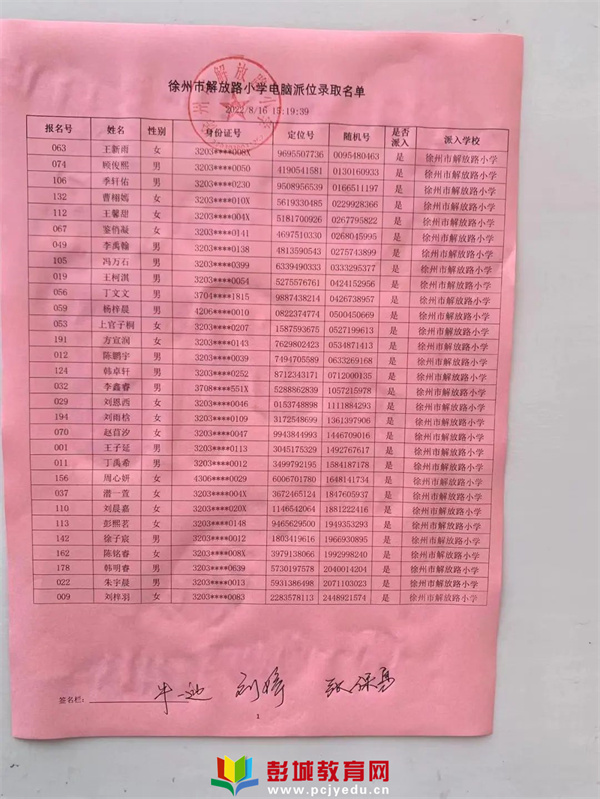 徐州市解放路小学电脑派位录取名单
2022/8/16 15:19:39
报名号 姓名 性别 身份证号 定位号 随机号 是否派入 派入学校
063 王新雨 女 3203****008X 9695507736 0095480463 是 徐州市解放路小学
074 顾俊熙 男 3203****0050 4190541581 0130160933 是 徐州市解放路小学
106 季轩佑 男 3203****0230 9508956539 0166511197 是 徐州市解放路小学
132 曹栩嫣 女 3203****010X 5619330485 0229928366 是 徐州市解放路小学
112 王馨甜 女 3203****004X 5181700926 0267795822 是 徐州市解放路小学
067 鉴俏凝 女 3203****0141 4697510330 0268045995 是 徐州市解放路小学
049 李禹翰 男 3203****0138 4813590543 0275743899 是 徐州市解放路小学
105 冯万石 男 3203****0399 6339490333 0333295377 是 徐州市解放路小学
019 王柯淇 男 3203****0054 5275576761 0424152956 是 徐州市解放路小学
056 丁文文 男 3704****1815 9887438214 0426738957 是 徐州市解放路小学
059 杨梓晨 男 4206****0010 0822374774 0500450669 是 徐州市解放路小学
053 上官子桐 女 3203****0207 1587593675 0527199613 是 徐州市解放路小学
191 方宣润 女 3203****0143 7629802423 0534871413 是 徐州市解放路小学
012 陈鹏宇 男 3203****0039 7494705589 0633269168 是 徐州市解放路小学
124 韩卓轩 男 3203****0252 8712343171 0712000135 是 徐州市解放路小学
032 李鑫睿 男 3708****551X 5288862839 1057215978 是 徐州市解放路小学
029 刘恩西 女 3203****0046 0153748898 1111884293 是 徐州市解放路小学
194 刘雨桧 女 3203****0109 3172548699 1361397906 是 徐州市解放路小学
070 赵苜汐 女 3203****0047 9943844993 1446709016 是 徐州市解放路小学
001 王子延 男 3203****0113 3045175329 1492767617 是 徐州市解放路小学
011 丁禹希 男 3203****0012 3499792195 1584187178 是 徐州市解放路小学
156 周心妍 女 4306****0029 6006701780 1648141734 是 徐州市解放路小学
037 潜一萱 女 3203****004X 3672465124 1847605937 是 徐州市解放路小学
110 刘晨嘉 女 3203****020X 1146542064 1881222416 是 徐州市解放路小学
113 彭熙茗 女 3203****0148 9465629500 1949353293 是 徐州市解放路小学
142 徐子宸 男 3203****0012 1803419616 1966930895 是 徐州市解放路小学
162 陈铭睿 女 3203****008X 3979138066 1992998240 是 徐州市解放路小学
178 韩明睿 男 3203****0639 5730197578 2040014204 是 徐州市解放路小学
022 朱宇晨 男 3203****0013 5931386498 2071103023 是 徐州市解放路小学
009 刘梓羽 女 3203****0083 2283578113 2448921574 是 徐州市解放路小学
签名栏:
1
彭城教育网
www.pcjyedu.cn